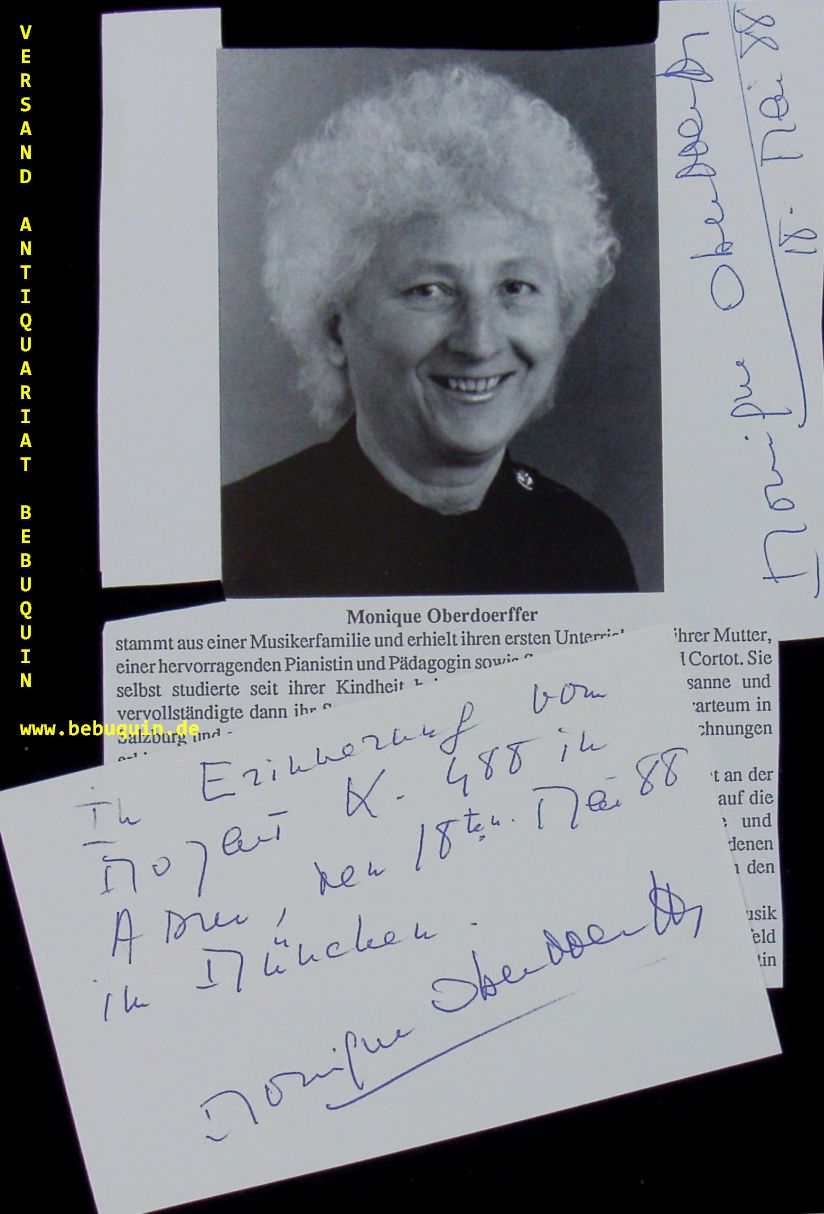 VERSAND ANTIQUARIAT BEBUQUIN
www.bebuquin.de
Monique Oberdoerffer
18. Mai 88
Monique Oberdoerffer
stammt aus einer Musikerfamilie und erhielt ihren ersten ihrer Mutter,
einer hervorragenden Pianistin und Pädagogin sowie Cortot. Sie
selbst studierte seit ihrer Kindheit und
vervollständigte dann in
Salzburg und
an der
auf die
und
den
In Erinnerung vom
Mozart K. 488 in
A Dur, den 18ten. Mai 88
in München.
Monique Oberdoerffer